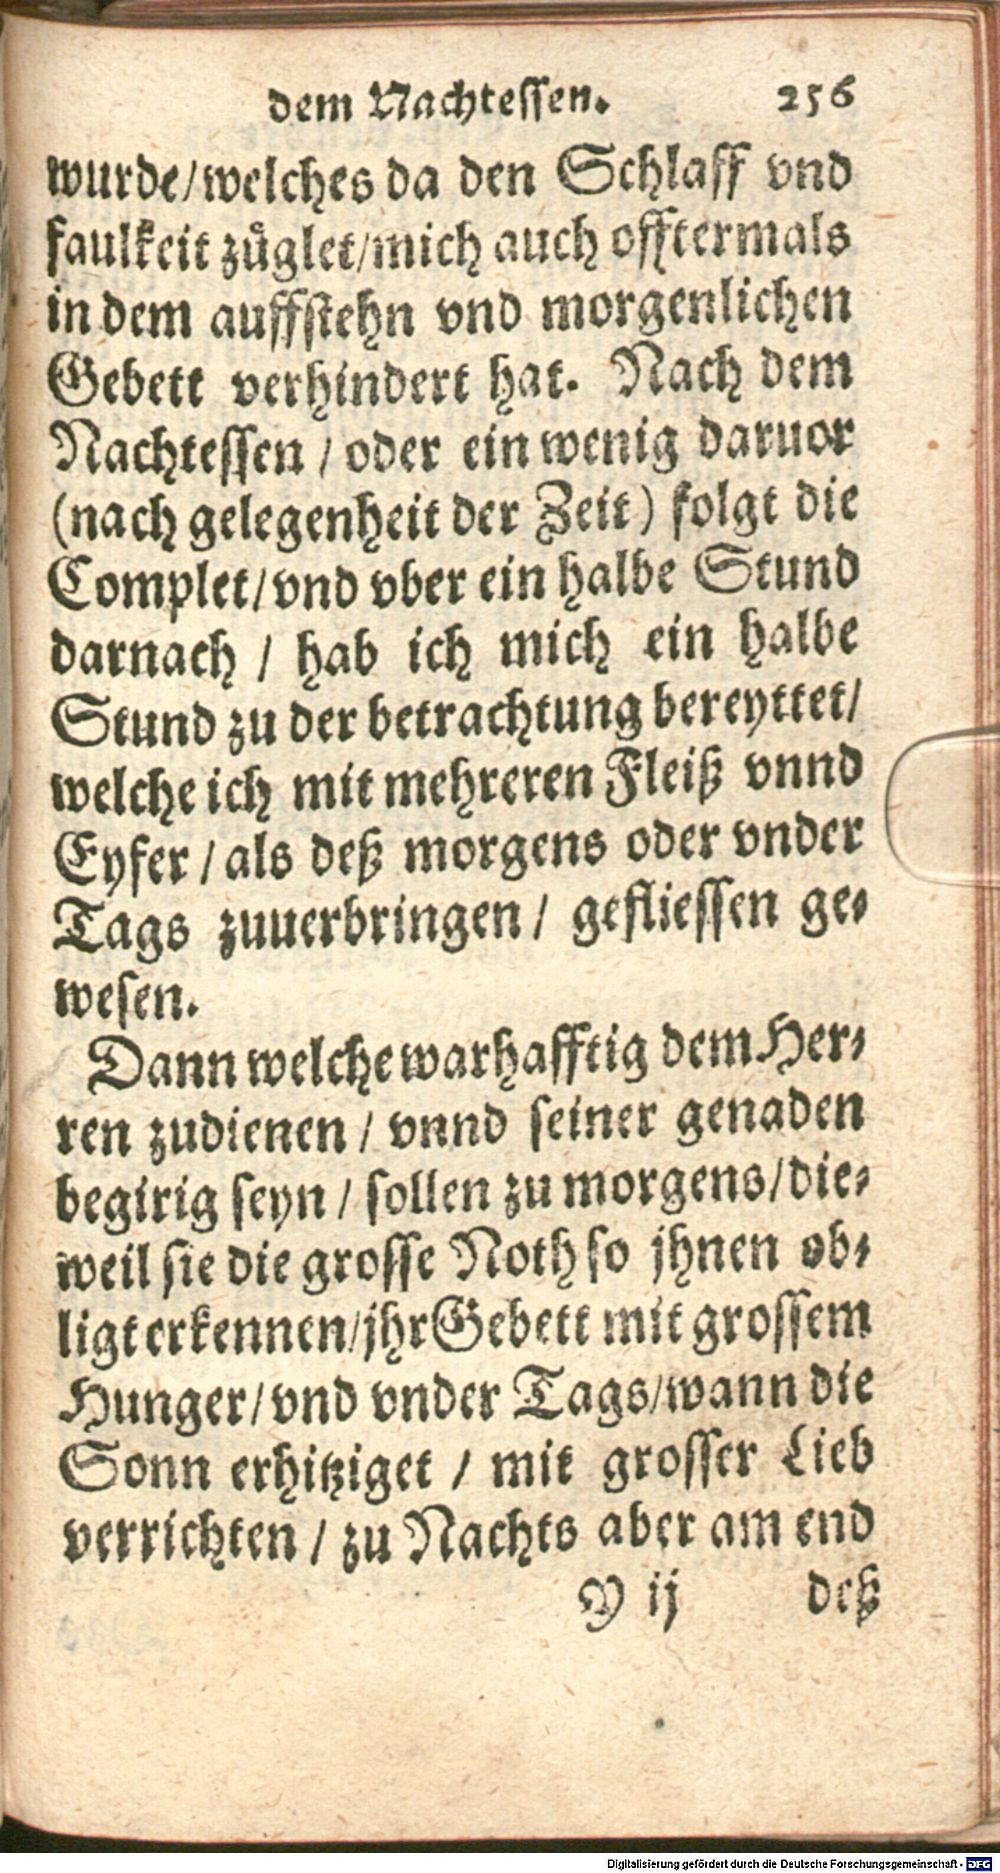 dem Nachtessen. 256
wurde/welches da den Schlaff vnd
faulkeit zůglet/mich auch offtermals
in dem auffstehn vnd morgenlichen
Gebett verhindert hat. Nach dem
Nachtessen / oder ein wenig daruor
(nach gelegenheit der Zeit) folgt die
Complet/vnd vber ein halbe Stund
darnach / hab ich mich ein halbe
Stund zu der betrachtung bereyttet/
welche ich mit mehreren Fleiß vnnd
Eyfer / als deß morgens oder vnder
Tags zuuerbringen / gefliessen ge-
wesen.
Dann welche warhafftig dem Her-
ren zudienen / vnnd seiner genaden
begirig seyn / sollen zu morgens/die-
weil sie die grosse Noth so jhnen ob-
ligt erkennen/jhr Gebett mit grossem
Hunger/vnd vnder Tags/wann die
Sonn erhitziget / mit grosser Lieb
verrichten / zu Nachts aber am end
Y ij deß
Digitalisierung gefördert durch die Deutsche Forschungsgemeinschaft - DFG